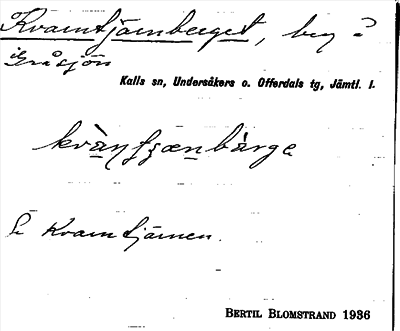 Kvarntjärnberget, berg
i Gråsjön
Kalls sn, Undersåkers o. Offerdals tg, Jämtl. l.
Kvarntjärnen.
BERTIL BLOMSTRAND 1936